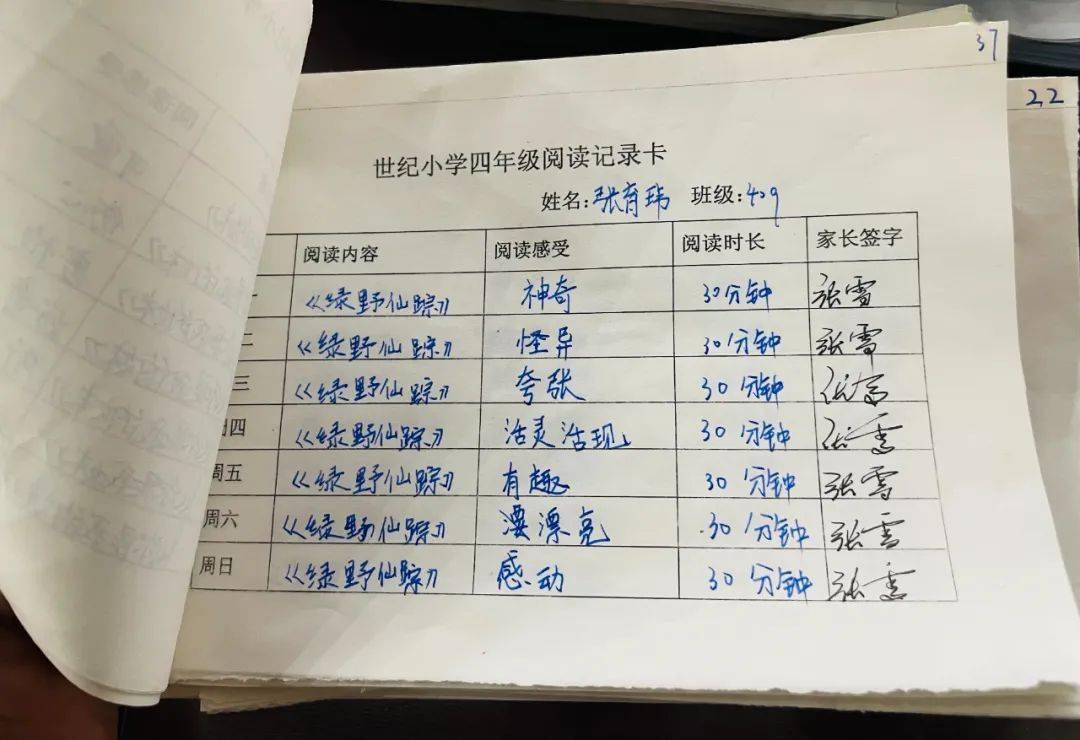 37
22
世纪小学四年级阅读记录卡
姓名:张育玮 班级:409
阅读内容 阅读感受 阅读时长 家长签字
一 《绿野仙踪》 神奇 30分钟 张雪
二 《绿野仙踪》 怪异 30分钟 张雪
三 《绿野仙踪》 夸张 30分钟 张雪
周四 《绿野仙踪》 活灵活现 30分钟 张雪
周五 《绿野仙踪》 有趣 30分钟 张雪
周六 《绿野仙踪》 漂亮 30分钟 张雪
周日 《绿野仙踪》 感动 30分钟 张雪